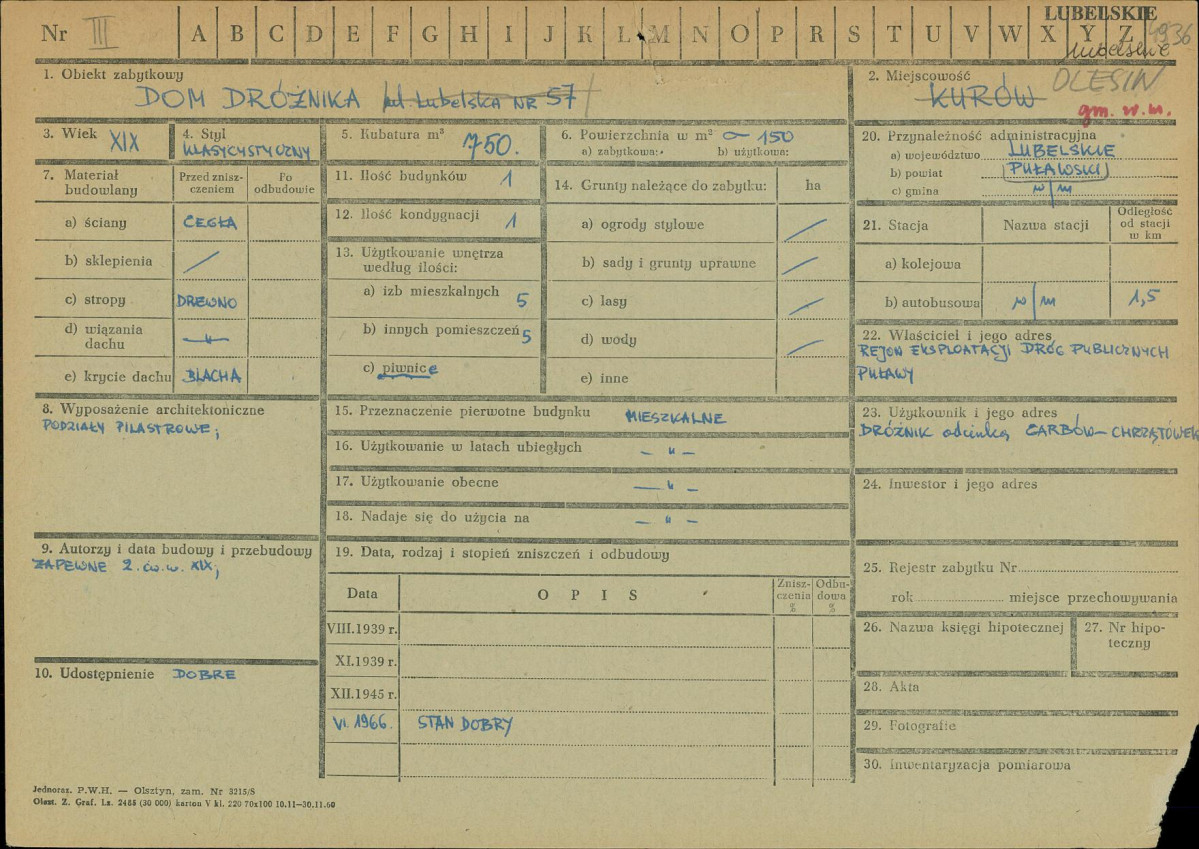 Nr III A B C D E F G H I J K L M N O P R S T U V W X Y Z
LUBELSKIE
4936
lubelskie
1. Obiekt zabytkowy
DOM DRÓŻNIKA ul. Lubelska NR 57
2. Miejscowość
KURÓW OLESIN
gm. w.m.
3. Wiek XIX
4. Styl
KLASYCYSTYCZNY
5. Kubatura m³ 750.
6. Powierzchnia w m² ~ 150
a) zabytkowa: b) użytkowa:
20. Przynależność administracyjna
a) województwo LUBELSKIE
b) powiat PUŁAWSKI
c) gmina w/m
7. Materiał budowlany
Przed zniszczeniem
Po odbudowie
a) ściany CEGŁA
b) sklepienia /
c) stropy DREWNO
d) wiązania dachu —"—
e) krycie dachu BLACHA
11. Ilość budynków 1
12. Ilość kondygnacji 1
13. Użytkowanie wnętrza
według ilości:
a) izb mieszkalnych 5
b) innych pomieszczeń 5
c) piwnice
14. Grunty należące do zabytku: ha
a) ogrody stylowe /
b) sady i grunty uprawne /
c) lasy /
d) wody /
e) inne
21. Stacja Nazwa stacji Odległość od stacji w km
a) kolejowa
b) autobusowa w/m 1,5
22. Właściciel i jego adres
REJON EKSPLOATACJI DRÓG PUBLICZNYCH
PUŁAWY
8. Wyposażenie architektoniczne
PODZIAŁY PILASTROWE;
15. Przeznaczenie pierwotne budynku MIESZKALNE
16. Użytkowanie w latach ubiegłych — " —
17. Użytkowanie obecne — " —
18. Nadaje się do użycia na — " —
23. Użytkownik i jego adres
DRÓŻNIK odcinka GARBÓW–CHRZĄTÓWEK
24. Inwestor i jego adres
9. Autorzy i data budowy i przebudowy
ZAPEWNE 2. ćw. w. XIX;
19. Data, rodzaj i stopień zniszczeń i odbudowy
Data OPIS Zniszczenia % Odbudowa %
VIII.1939 r.
XI.1939 r.
XII.1945 r.
VI. 1966. STAN DOBRY
25. Rejestr zabytku Nr
rok miejsce przechowywania
26. Nazwa księgi hipotecznej
27. Nr hipoteczny
10. Udostępnienie DOBRE
28. Akta
29. Fotografie
30. Inwentaryzacja pomiarowa
Jednoraz. P.W.H. — Olsztyn, zam. Nr 3215/S
Olszt. Z. Graf. Lz. 2485 (30 000) karton V kl. 220 70x100 10.11—30.11.60